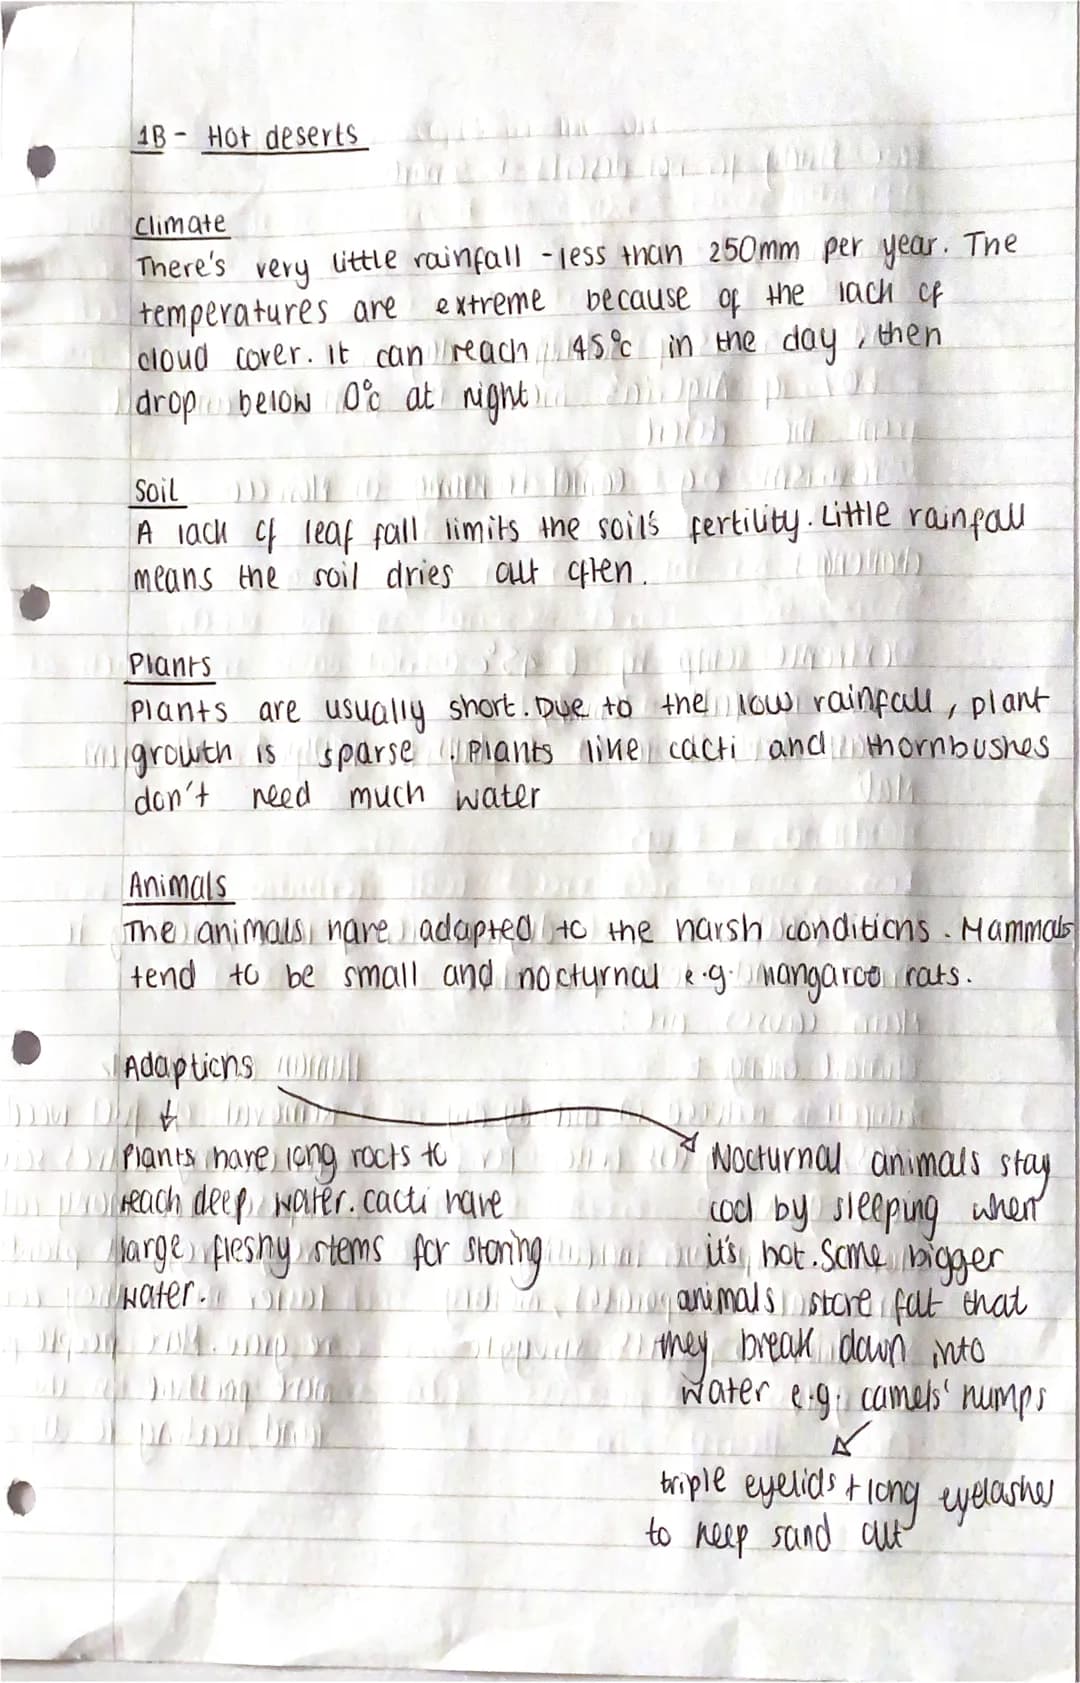 1B - Hot deserts
Climate
There's very little rainfall - less than 250mm per year. The
temperatures are extreme because of the lack of
cloud cover. it can reach 45°c in the day, then
drop below 0°c at night
Soil
A lack of leaf fall limits the soil's fertility. Little rainfall
means the soil dries out often.
Plants
Plants are usually short. Due to the low rainfall, plant
growth is sparse. Plants like cacti and thornbushes
don't need much water
Animals
The animals have adapted to the harsh conditions. Mammals
tend to be small and nocturnal e.g. kangaroo rats.
Adaptions
Plants have long roots to
reach deep water. cacti have
large fleshy stems for storing
water.
Nocturnal animals stay
cool by sleeping when
it's hot. Some bigger
animals store fat that
they break down into
water e.g. camels' humps
triple eyelids + long eyelashes
to keep sand out